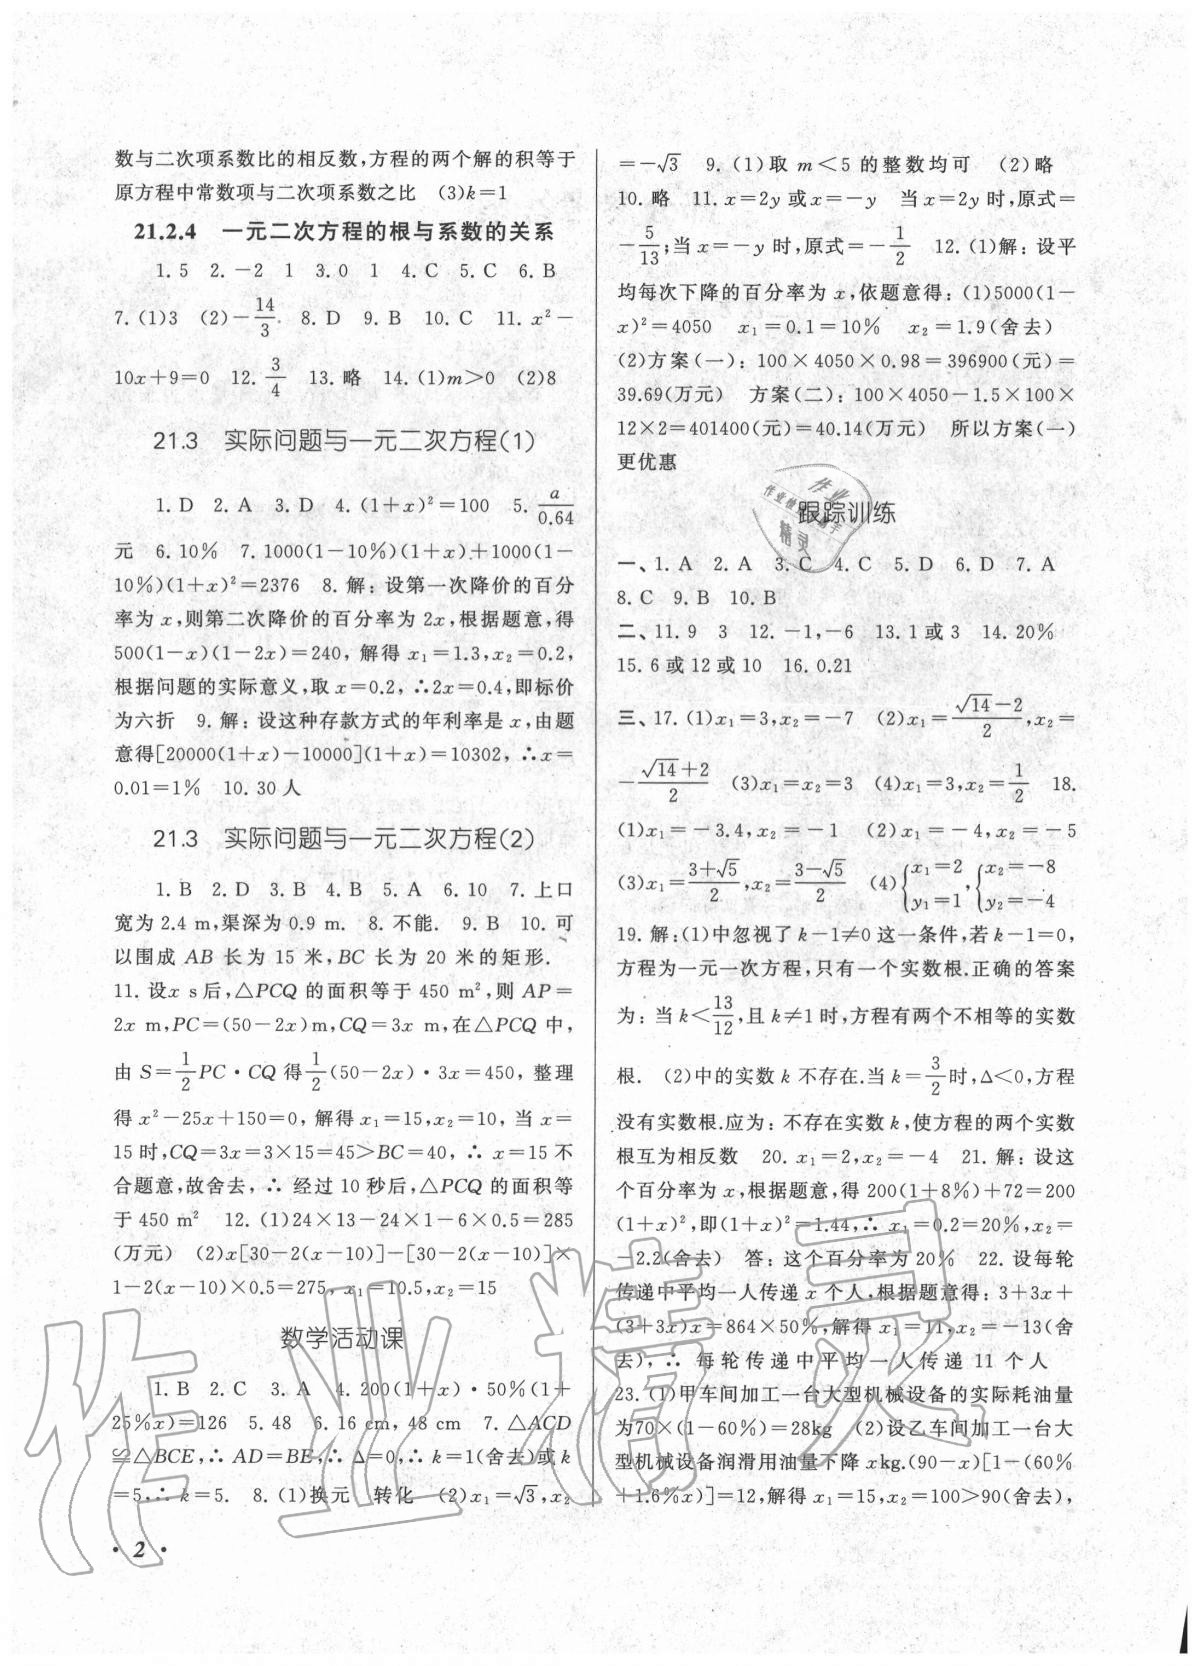 数与二次项系数比的相反数,方程的两个解的积等于
原方程中常数项与二次项系数之比 (3)k=1
21.2.4 一元二次方程的根与系数的关系
1.5 2.-2 1 3.0 1 4.C 5.C 6.B
7.(1)3 (2)-14/3. 8.D 9.B 10.C 11.x²-
10x+9=0 12.3/4 13.略 14.(1)m>0 (2)8
21.3 实际问题与一元二次方程(1)
1.D 2.A 3.D 4.(1+x)²=100 5.a/0.64
元 6.10% 7.1000(1-10%)(1+x)+1000(1-
10%)(1+x)²=2376 8.解:设第一次降价的百分
率为x,则第二次降价的百分率为2x,根据题意,得
500(1-x)(1-2x)=240,解得x₁=1.3,x₂=0.2,
根据问题的实际意义,取x=0.2,∴2x=0.4,即标价
为六折 9.解:设这种存款方式的年利率是x,由题
意得[20000(1+x)-10000](1+x)=10302,∴x=
0.01=1% 10.30人
21.3 实际问题与一元二次方程(2)
1.B 2.D 3.B 4.B 5.A 6.10 7.上口
宽为2.4 m,渠深为0.9 m. 8.不能. 9.B 10.可
以围成AB长为15米,BC长为20米的矩形.
11.设x s后,△PCQ的面积等于450 m²,则AP=
2x m,PC=(50-2x)m,CQ=3x m,在△PCQ中,
由S=1/2PC·CQ得1/2(50-2x)·3x=450,整理
得x²-25x+150=0,解得x₁=15,x₂=10,当x=
15时,CQ=3x=3×15=45>BC=40,∴x=15不
合题意,故舍去,∴经过10秒后,△PCQ的面积等
于450 m² 12.(1)24×13-24×1-6×0.5=285
(万元) (2)x[30-2(x-10)]-[30-2(x-10)]×
1-2(x-10)×0.5=275,x₁=10.5,x₂=15
数学活动课
1.B 2.C 3.A 4.200(1+x)·50%(1+
25%x)=126 5.48 6.16 cm,48 cm 7.△ACD
≌△BCE,∴AD=BE,∴Δ=0,∴k=1(舍去)或k
=5,∴k=5. 8.(1)换元 转化 (2)x₁=√3,x₂
·2·
=-√3 9.(1)取m<5的整数均可 (2)略
10.略 11.x=2y或x=-y 当x=2y时,原式=
-5/13;当x=-y时,原式=-1/2 12.(1)解:设平
均每次下降的百分率为x,依题意得:(1)5000(1-
x)²=4050 x₁=0.1=10% x₂=1.9(舍去)
(2)方案(一):100×4050×0.98=396900(元)=
39.69(万元) 方案(二):100×4050-1.5×100×
12×2=401400(元)=40.14(万元) 所以方案(一)
更优惠
跟踪训练
一、1.A 2.A 3.C 4.C 5.D 6.D 7.A
8.C 9.B 10.B
二、11.9 3 12.-1,-6 13.1或3 14.20%
15.6或12或10 16.0.21
三、17.(1)x₁=3,x₂=-7 (2)x₁=(√14-2)/2,x₂=
-(√14+2)/2 (3)x₁=x₂=3 (4)x₁=3,x₂=1/2 18.
(1)x₁=-3.4,x₂=-1 (2)x₁=-4,x₂=-5
(3)x₁=(3+√5)/2,x₂=(3-√5)/2 (4){x₁=2 y₁=1,{x₂=-8 y₂=-4
19.解:(1)中忽视了k-1≠0这一条件,若k-1=0,
方程为一元一次方程,只有一个实数根.正确的答案
为:当k<13/12,且k≠1时,方程有两个不相等的实数
根. (2)中的实数k不存在.当k=3/2时,Δ<0,方程
没有实数根.应为:不存在实数k,使方程的两个实数
根互为相反数 20.x₁=2,x₂=-4 21.解:设这
个百分率为x,根据题意,得200(1+8%)+72=200
(1+x)²,即(1+x)²=1.44,∴x₁=0.2=20%,x₂=
-2.2(舍去) 答:这个百分率为20% 22.设每轮
传递中平均一人传递x个人,根据题意得:3+3x+
(3+3x)x=864×50%,解得x₁=11,x₂=-13(舍
去),∴每轮传递中平均一人传递11个人
23.(1)甲车间加工一台大型机械设备的实际耗油量
为70×(1-60%)=28kg (2)设乙车间加工一台大
型机械设备润滑用油量下降x kg.(90-x)[1-(60%
+1.6%x)]=12,解得x₁=15,x₂=100>90(舍去),
作业精灵